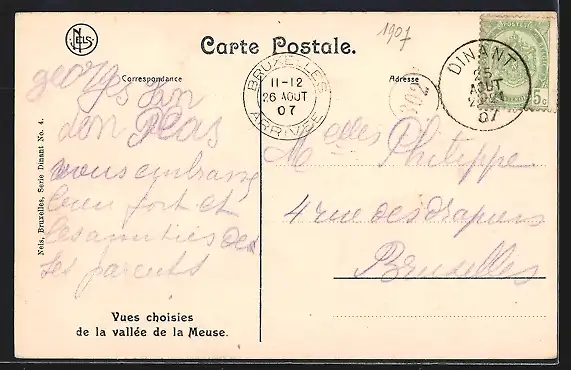 NELS
Carte Postale.
1907
Correspondance
Adresse
BRUXELLES
11-12
26 AOUT
07
ARRIVÉE
DINANT
25
AOUT
07
5c
georges
vous embrasse
bien fort et
les amitiés de
ses parents
Melles Philippe
4 rue des drapiers
Bruxelles
Nels, Bruxelles, Serie Dinant No. 4.
Vues choisies
de la vallée de la Meuse.